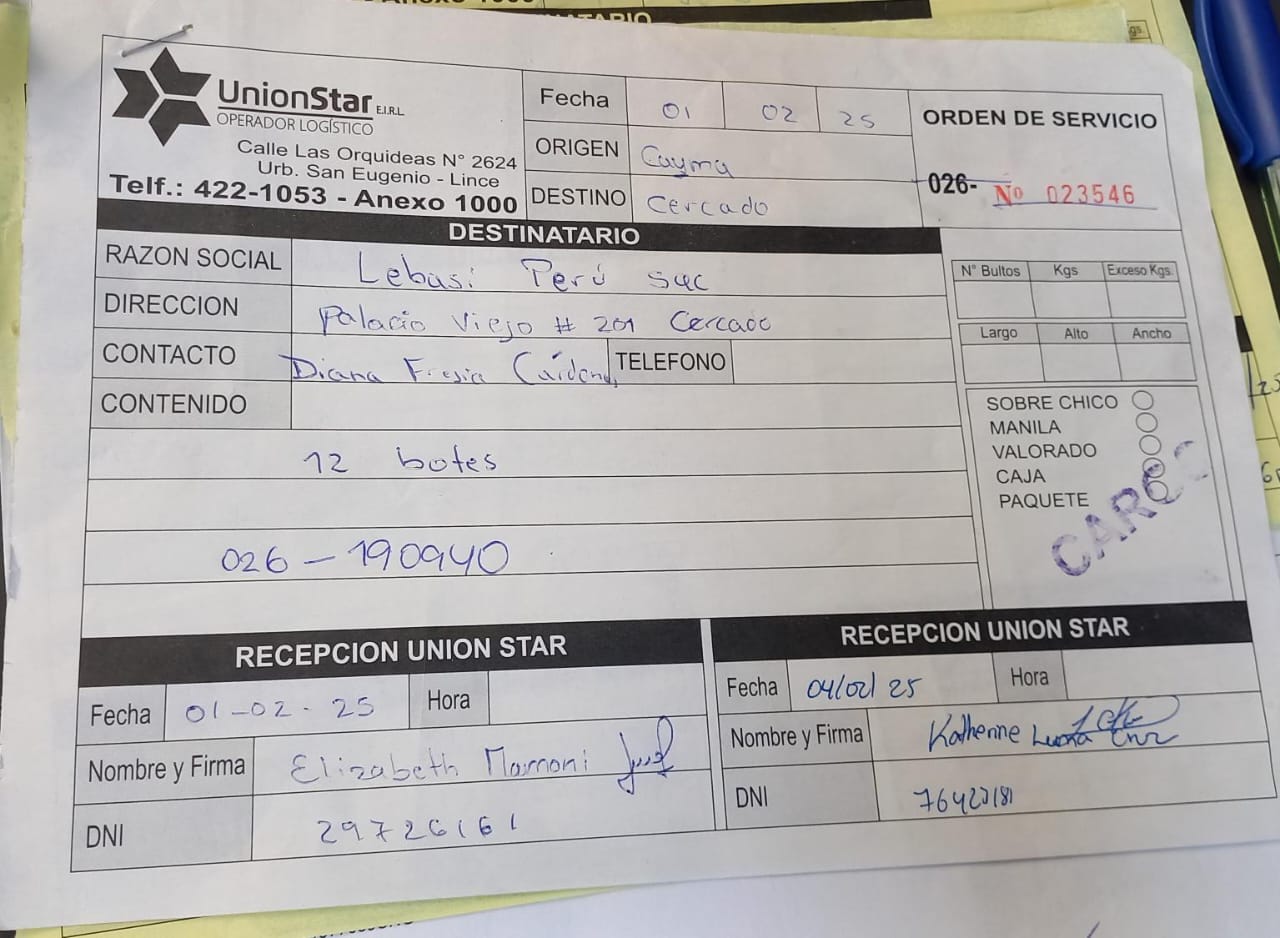 UnionStar E.I.R.L
OPERADOR LOGÍSTICO
Calle Las Orquideas N° 2624
Urb. San Eugenio - Lince
Telf.: 422-1053 - Anexo 1000
Fecha 01 02 25
ORIGEN Cayma
DESTINO Cercado
ORDEN DE SERVICIO
026- Nº 023546
DESTINATARIO
RAZON SOCIAL Lebasi Perú sac
DIRECCION Palacio Viejo # 201 Cercado
CONTACTO Diana Fresia Cárdenas TELEFONO
CONTENIDO
12 botes
026 - 190940
N° Bultos Kgs Exceso Kgs.
Largo Alto Ancho
SOBRE CHICO
MANILA
VALORADO
CAJA
PAQUETE
CARGO
RECEPCION UNION STAR
Fecha 01-02-25 Hora
Nombre y Firma Elizabeth Mamani
DNI 29726161
RECEPCION UNION STAR
Fecha 04/02/25 Hora
Nombre y Firma Katherine
DNI